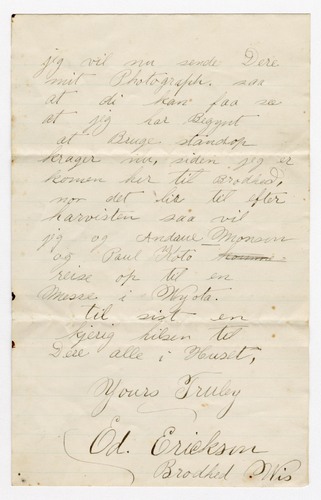 jig vil nu sende Dere
mit Photograph. saa
at di kan faa se
at jig har Begynt
at Bruge standop
krager nu, siden jig er
komen her til Brodhed,
nor det lir til efter
harvisten saa vil
jig og Andaue Monson
og Paul Koto
reise op til en
Messe i Wyota.
til sist en
kjerig hilsen til
Dere alle i Huset,
Yours Truley
Ed. Erickson
Brodhed Wis